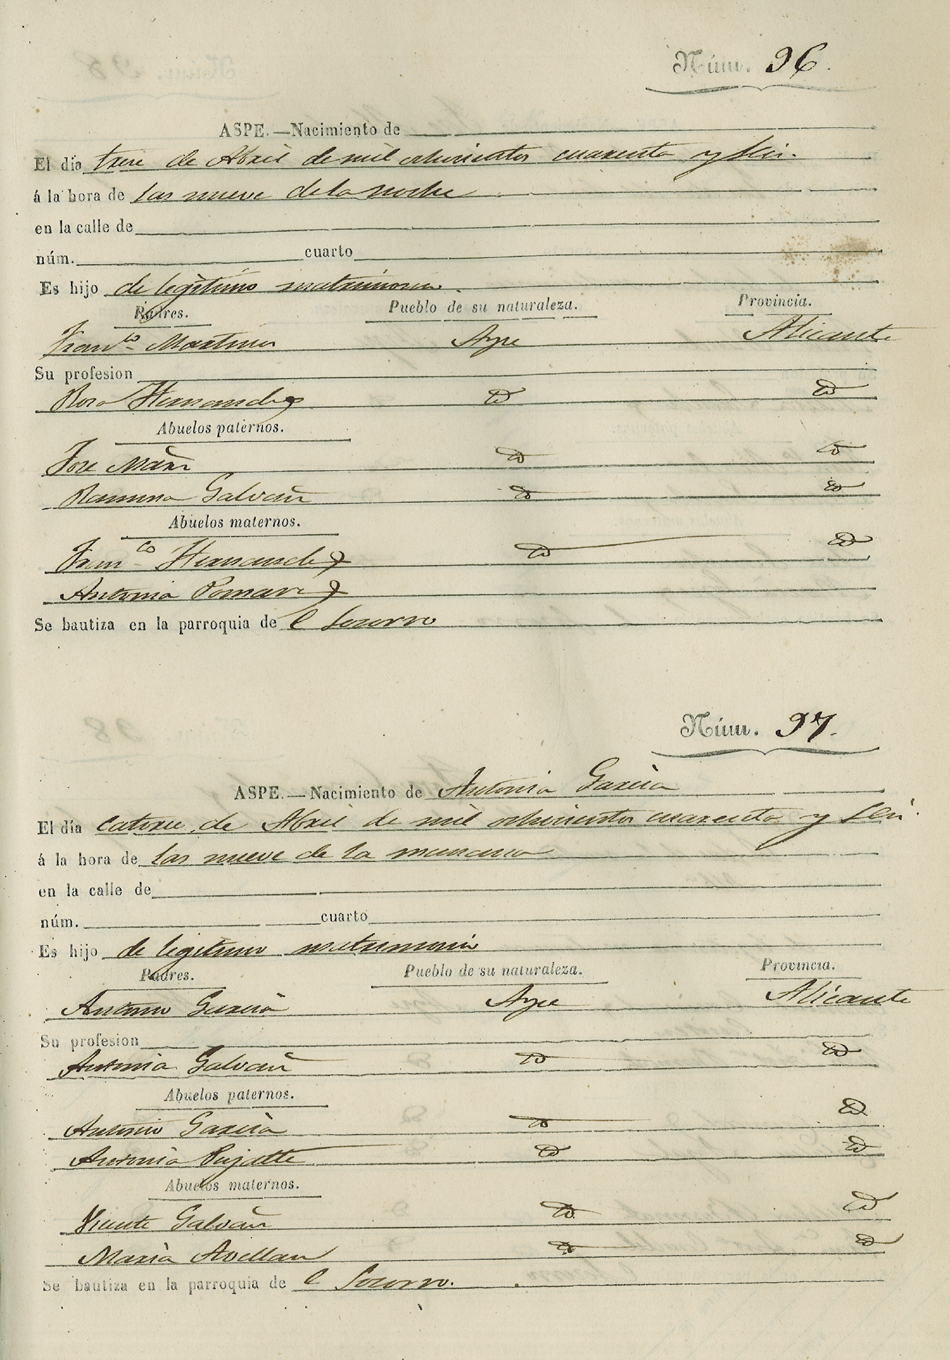 Núm. 96.
ASPE.—Nacimiento de
El día trece de Abril de mil ochocientos cuarenta y seis.
á la hora de las nueve de la noche
en la calle de
núm. cuarto
Es hijo de legitimo matrimonio.
Padres. Pueblo de su naturaleza. Provincia.
Franco Martinez Aspe Alicante
Su profesion
Rosa Hernandez id id
Abuelos paternos.
Jose id id
Ramona Galvañ id id
Abuelos maternos.
Franco Hernandez id id
Antonia
Se bautiza en la parroquia de l Socorro
Núm. 97.
ASPE.—Nacimiento de Antonia Garcia
El día catorce de Abril de mil ochocientos cuarenta y seis.
á la hora de las nueve de la manana
en la calle de
núm. cuarto
Es hijo de legitimo matrimonio
Padres. Pueblo de su naturaleza. Provincia.
Antonio Garcia Aspe Alicante
Su profesion
Antonia Galvañ id id
Abuelos paternos.
Antonio Garcia id id
Antonia Pujalte id id
Abuelos maternos.
Vicente Galvañ id id
Maria Avellan id id
Se bautiza en la parroquia de l Socorro.